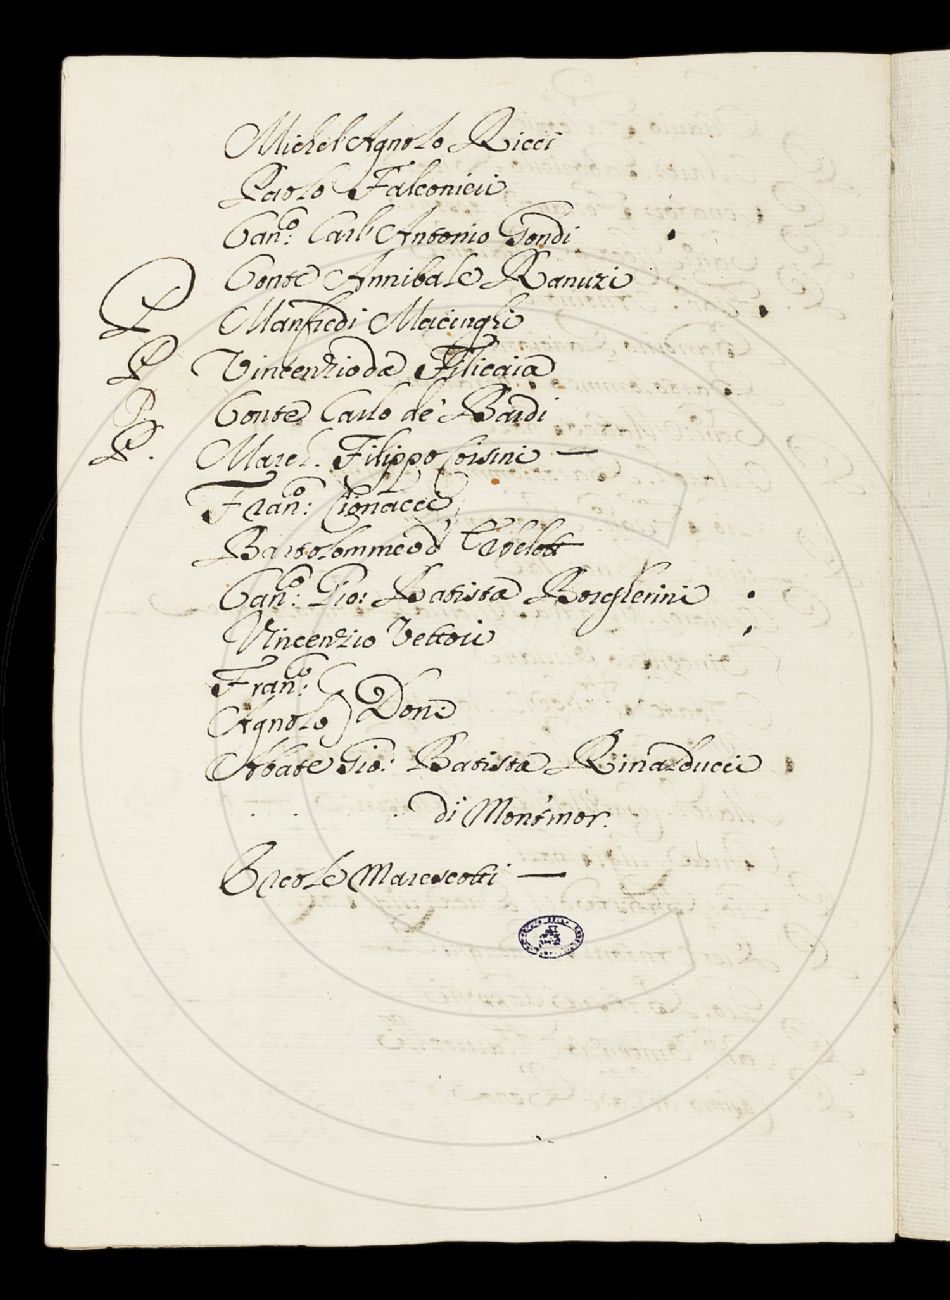 Michel Agnolo Ricci
Paolo Falconieri
Can.º Carl' Antonio Gondi
Conte Annibale Ranuzi
P Manfredi Macinghi
P Vincenzio da Filicaia
P Conte Carlo de' Bardi
P. March. Filippo Corsini —
Fran.º Cionacci
Bartolommeo
Can.º Gio: Batista Borgherini
Vincenzio Vettori
Fran.º
Agnolo) Doni
Abate Gio: Batista Rinalducci
di Mont'mor.
Ercole Marescotti —